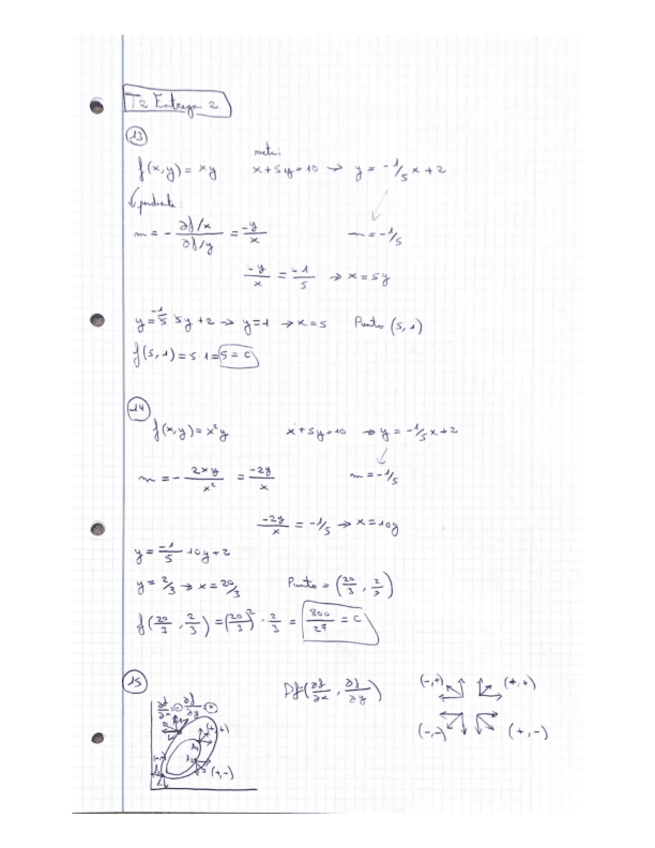 T2 Entrega 2
13
recta:
f(x,y) = xy x+5y=10 → y = -1/5 x + 2
pendiente:
m = - ∂f/x / ∂f/y = -y/x m = -1/5
-y/x = -1/5 → x = 5y
y = -1/5 5y + 2 → y=1 → x=5 Punto (5,1)
f(5,1) = 5·1 = 5 = C
14
f(x,y) = x²y x+5y=10 → y = -1/5 x + 2
m = - 2xy/x² = -2y/x m = -1/5
-2y/x = -1/5 → x = 10y
y = -1/5 10y + 2
y = 2/3 → x = 20/3 Punto = (20/3, 2/3)
f(20/3, 2/3) = (20/3)² · 2/3 = 800/27 = C
15
∂f/∂x = - ∂f/∂y = + Df = (∂f/∂x, ∂f/∂y) (-,+) (+,+)
(+,+)
(-,-) (+,-)
(+,-)